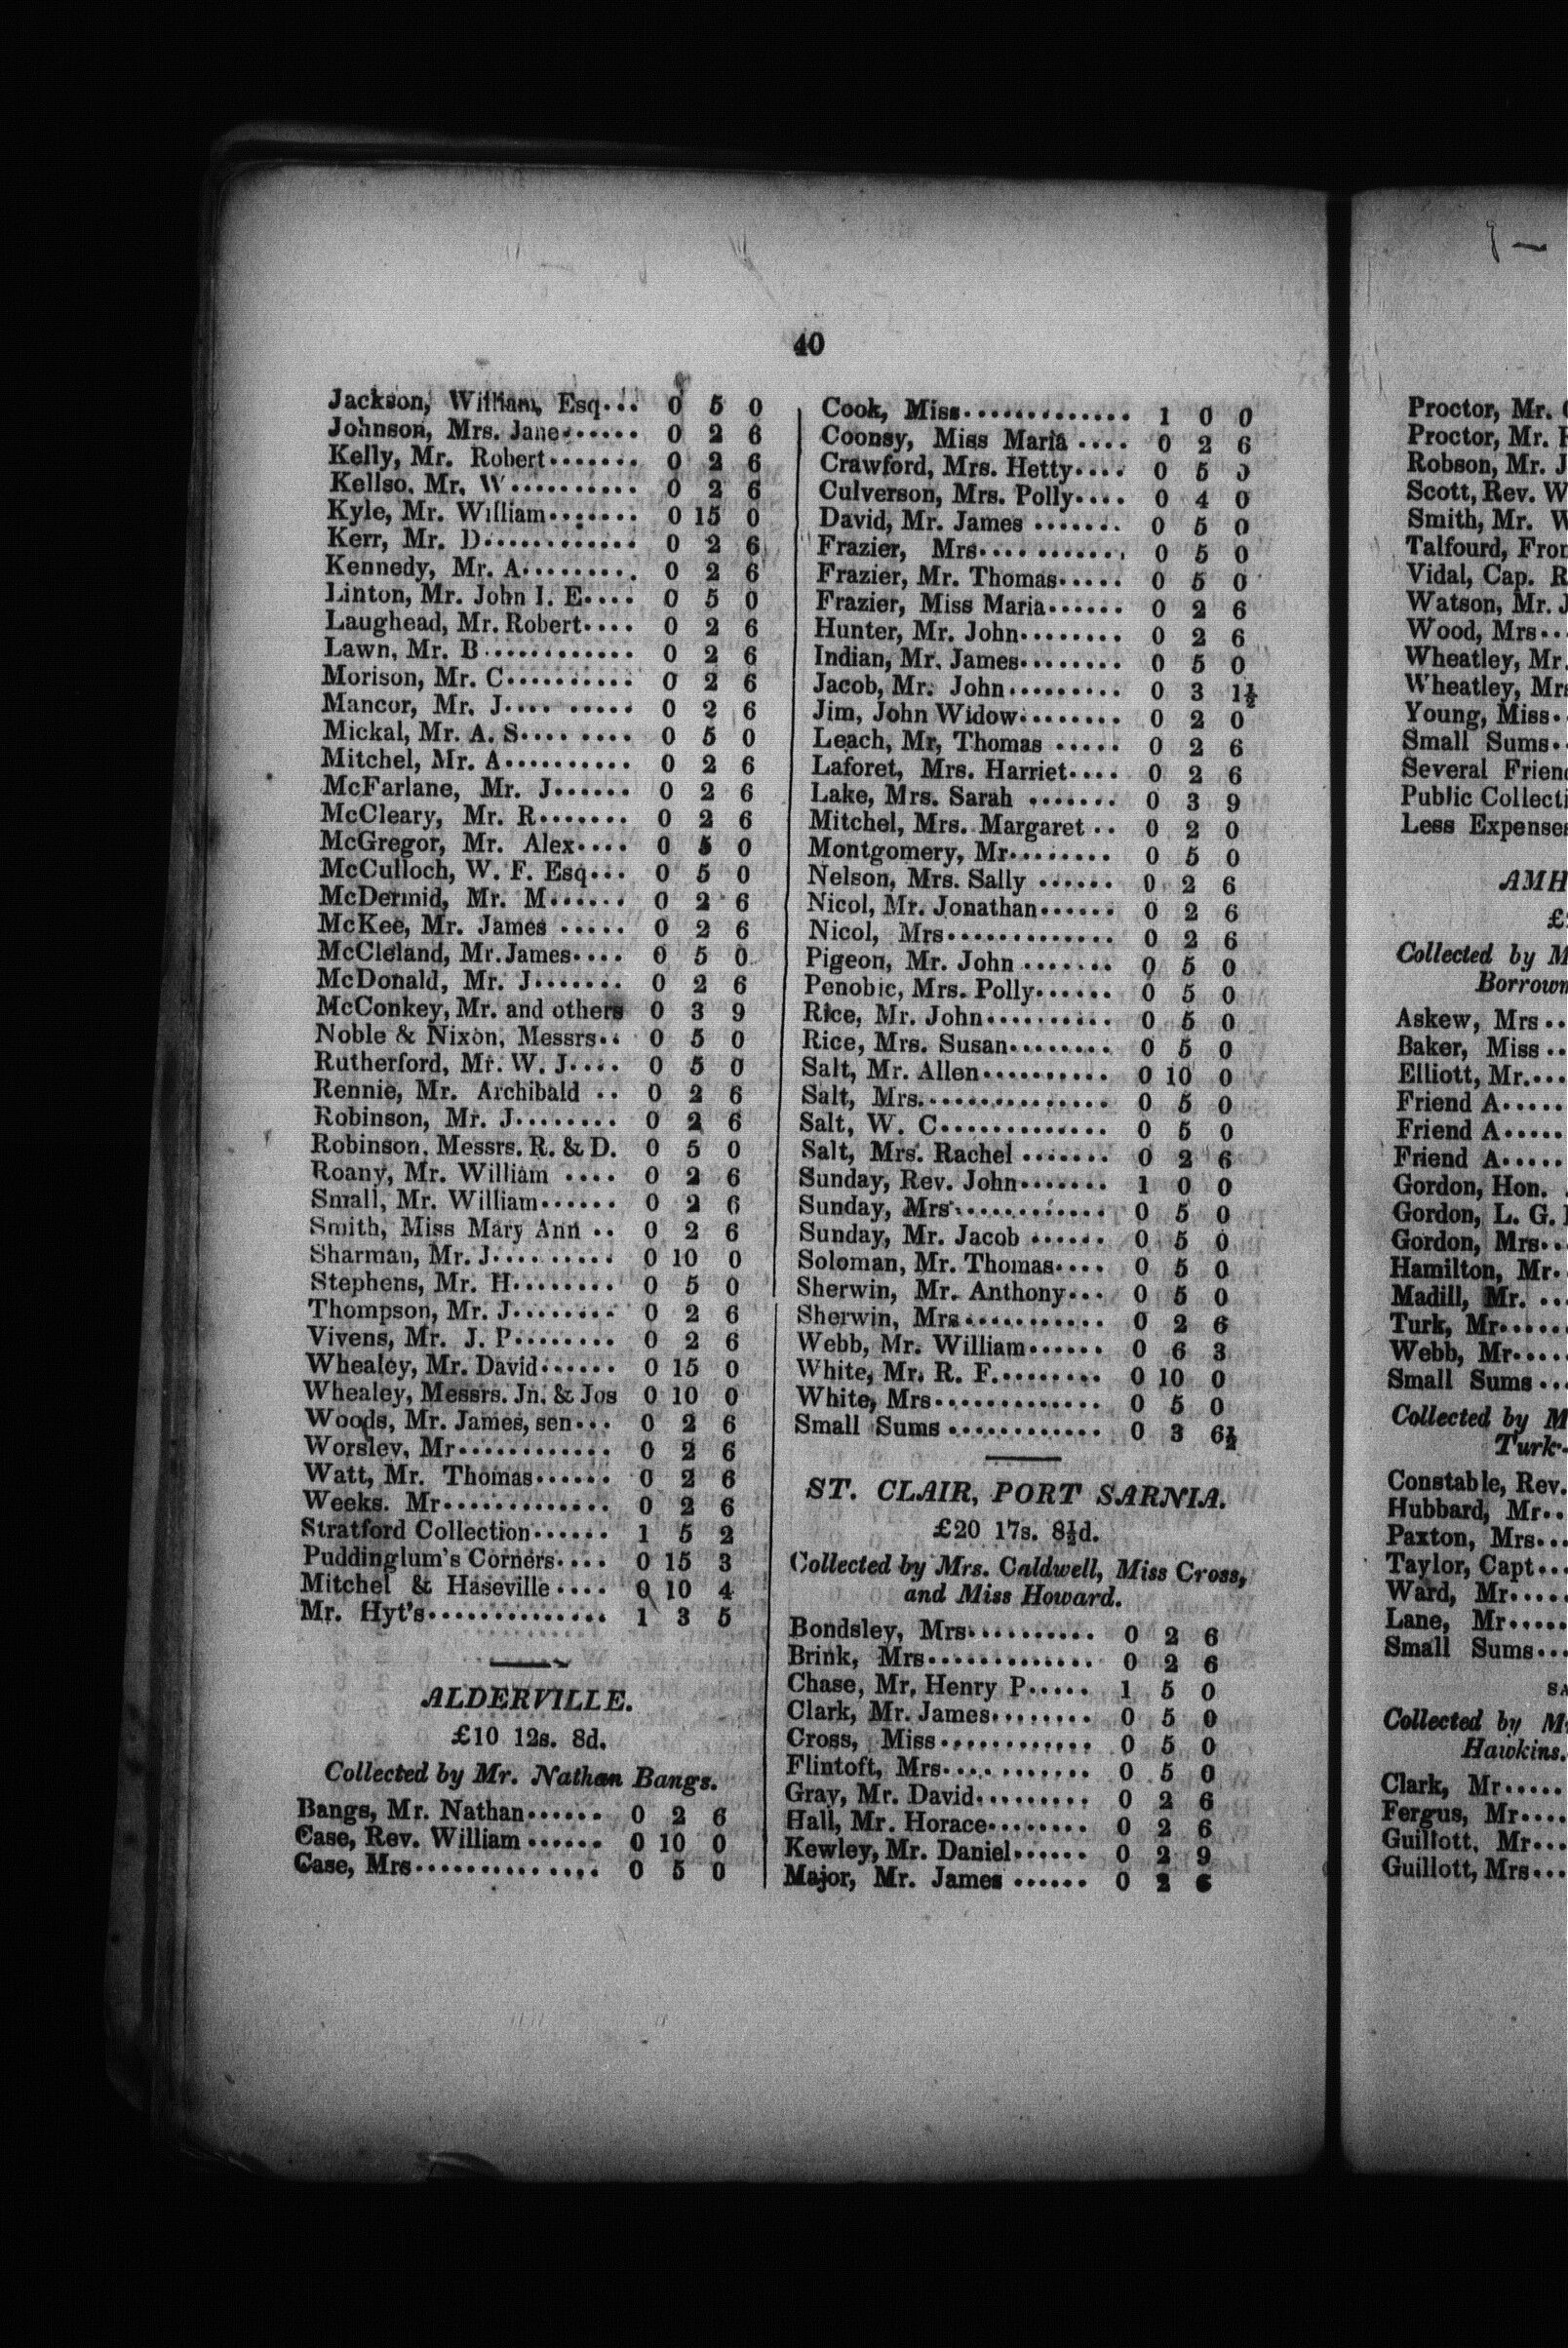 40
Jackson, William, Esq... 0 5 0
Johnson, Mrs. Jane...... 0 2 6
Kelly, Mr. Robert....... 0 2 6
Kellso, Mr. W.......... 0 2 6
Kyle, Mr. William....... 0 15 0
Kerr, Mr. D............ 0 2 6
Kennedy, Mr. A......... 0 2 6
Linton, Mr. John I. E.... 0 5 0
Laughead, Mr. Robert.... 0 2 6
Lawn, Mr. B............ 0 2 6
Morison, Mr. C.......... 0 2 6
Mancor, Mr. J.... ..... 0 2 6
Mickal, Mr. A. S.... .... 0 5 0
Mitchel, Mr. A.......... 0 2 6
McFarlane, Mr. J...... 0 2 6
McCleary, Mr. R....... 0 2 6
McGregor, Mr. Alex.... 0 5 0
McCulloch, W. F. Esq... 0 5 0
McDermid, Mr. M...... 0 2 6
McKee, Mr. James ..... 0 2 6
McCleland, Mr. James.... 0 5 0
McDonald, Mr. J....... 0 2 6
McConkey, Mr. and others 0 3 9
Noble & Nixon, Messrs.. 0 5 0
Rutherford, Mr. W. J.... 0 5 0
Rennie, Mr. Archibald .. 0 2 6
Robinson, Mr. J........ 0 2 6
Robinson, Messrs. R. & D. 0 5 0
Roany, Mr. William .... 0 2 6
Small, Mr. William...... 0 2 6
Smith, Miss Mary Ann .. 0 2 6
Sharman, Mr. J.... ..... 0 10 0
Stephens, Mr. H........ 0 5 0
Thompson, Mr. J........ 0 2 6
Vivens, Mr. J. P........ 0 2 6
Whealey, Mr. David...... 0 15 0
Whealey, Messrs. Jn. & Jos 0 10 0
Woods, Mr. James, sen... 0 2 6
Worsley, Mr............ 0 2 6
Watt, Mr. Thomas...... 0 2 6
Weeks. Mr............. 0 2 6
Stratford Collection...... 1 5 2
Puddinglum's Corners.... 0 15 3
Mitchel & Haseville .... 0 10 4
Mr. Hyt's.............. 1 3 5
ALDERVILLE.
£10 12s. 8d.
Collected by Mr. Nathan Bangs.
Bangs, Mr. Nathan...... 0 2 6
Case, Rev. William ...... 0 10 0
Case, Mrs.............. 0 5 0
Cook, Miss............. 1 0 0
Coonsy, Miss Maria .... 0 2 6
Crawford, Mrs. Hetty.... 0 5 0
Culverson, Mrs. Polly.... 0 4 0
David, Mr. James ....... 0 5 0
Frazier, Mrs.... ....... 0 5 0
Frazier, Mr. Thomas..... 0 5 0
Frazier, Miss Maria...... 0 2 6
Hunter, Mr. John........ 0 2 6
Indian, Mr. James........ 0 5 0
Jacob, Mr. John......... 0 3 1½
Jim, John Widow........ 0 2 0
Leach, Mr, Thomas ..... 0 2 6
Laforet, Mrs. Harriet.... 0 2 6
Lake, Mrs. Sarah ....... 0 3 9
Mitchel, Mrs. Margaret .. 0 2 0
Montgomery, Mr........ 0 5 0
Nelson, Mrs. Sally ...... 0 2 6
Nicol, Mr. Jonathan...... 0 2 6
Nicol, Mrs............. 0 2 6
Pigeon, Mr. John ....... 0 5 0
Penobic, Mrs. Polly...... 0 5 0
Rice, Mr. John.......... 0 5 0
Rice, Mrs. Susan........ 0 5 0
Salt, Mr. Allen.......... 0 10 0
Salt, Mrs............... 0 5 0
Salt, W. C............. 0 5 0
Salt, Mrs. Rachel ....... 0 2 6
Sunday, Rev. John....... 1 0 0
Sunday, Mrs............ 0 5 0
Sunday, Mr. Jacob ...... 0 5 0
Soloman, Mr. Thomas.... 0 5 0
Sherwin, Mr. Anthony... 0 5 0
Sherwin, Mrs........... 0 2 6
Webb, Mr. William...... 0 6 3
White, Mr. R. F......... 0 10 0
White, Mrs............. 0 5 0
Small Sums ............ 0 3 6½
ST. CLAIR, PORT SARNIA.
£20 17s. 8½d.
Collected by Mrs. Caldwell, Miss Cross,
and Miss Howard.
Bondsley, Mrs.......... 0 2 6
Brink, Mrs............. 0 2 6
Chase, Mr, Henry P..... 1 5 0
Clark, Mr. James........ 0 5 0
Cross, Miss............ 0 5 0
Flintoft, Mrs.... ....... 0 5 0
Gray, Mr. David......... 0 2 6
Hall, Mr. Horace........ 0 2 6
Kewley, Mr. Daniel...... 0 2 9
Major, Mr. James ...... 0 2 6
Proctor, Mr.
Proctor, Mr.
Robson, Mr. J
Scott, Rev. W
Smith, Mr. W
Talfourd, Fron
Vidal, Cap. R
Watson, Mr. J
Wood, Mrs...
Wheatley, Mr.
Wheatley, Mrs
Young, Miss.
Small Sums..
Several Frien
Public Collecti
Less Expenses
AMH
£
Collected by M
Borrown
Askew, Mrs..
Baker, Miss ..
Elliott, Mr....
Friend A.....
Friend A.....
Friend A.....
Gordon, Hon.
Gordon, L. G.
Gordon, Mrs..
Hamilton, Mr.
Madill, Mr. ..
Turk, Mr.....
Webb, Mr....
Small Sums ...
Collected by M
Turk-
Constable, Rev.
Hubbard, Mr..
Paxton, Mrs...
Taylor, Capt...
Ward, Mr.....
Lane, Mr.....
Small Sums...
SA
Collected by M
Hawkins.
Clark, Mr.....
Fergus, Mr....
Guillott, Mr...
Guillott, Mrs...